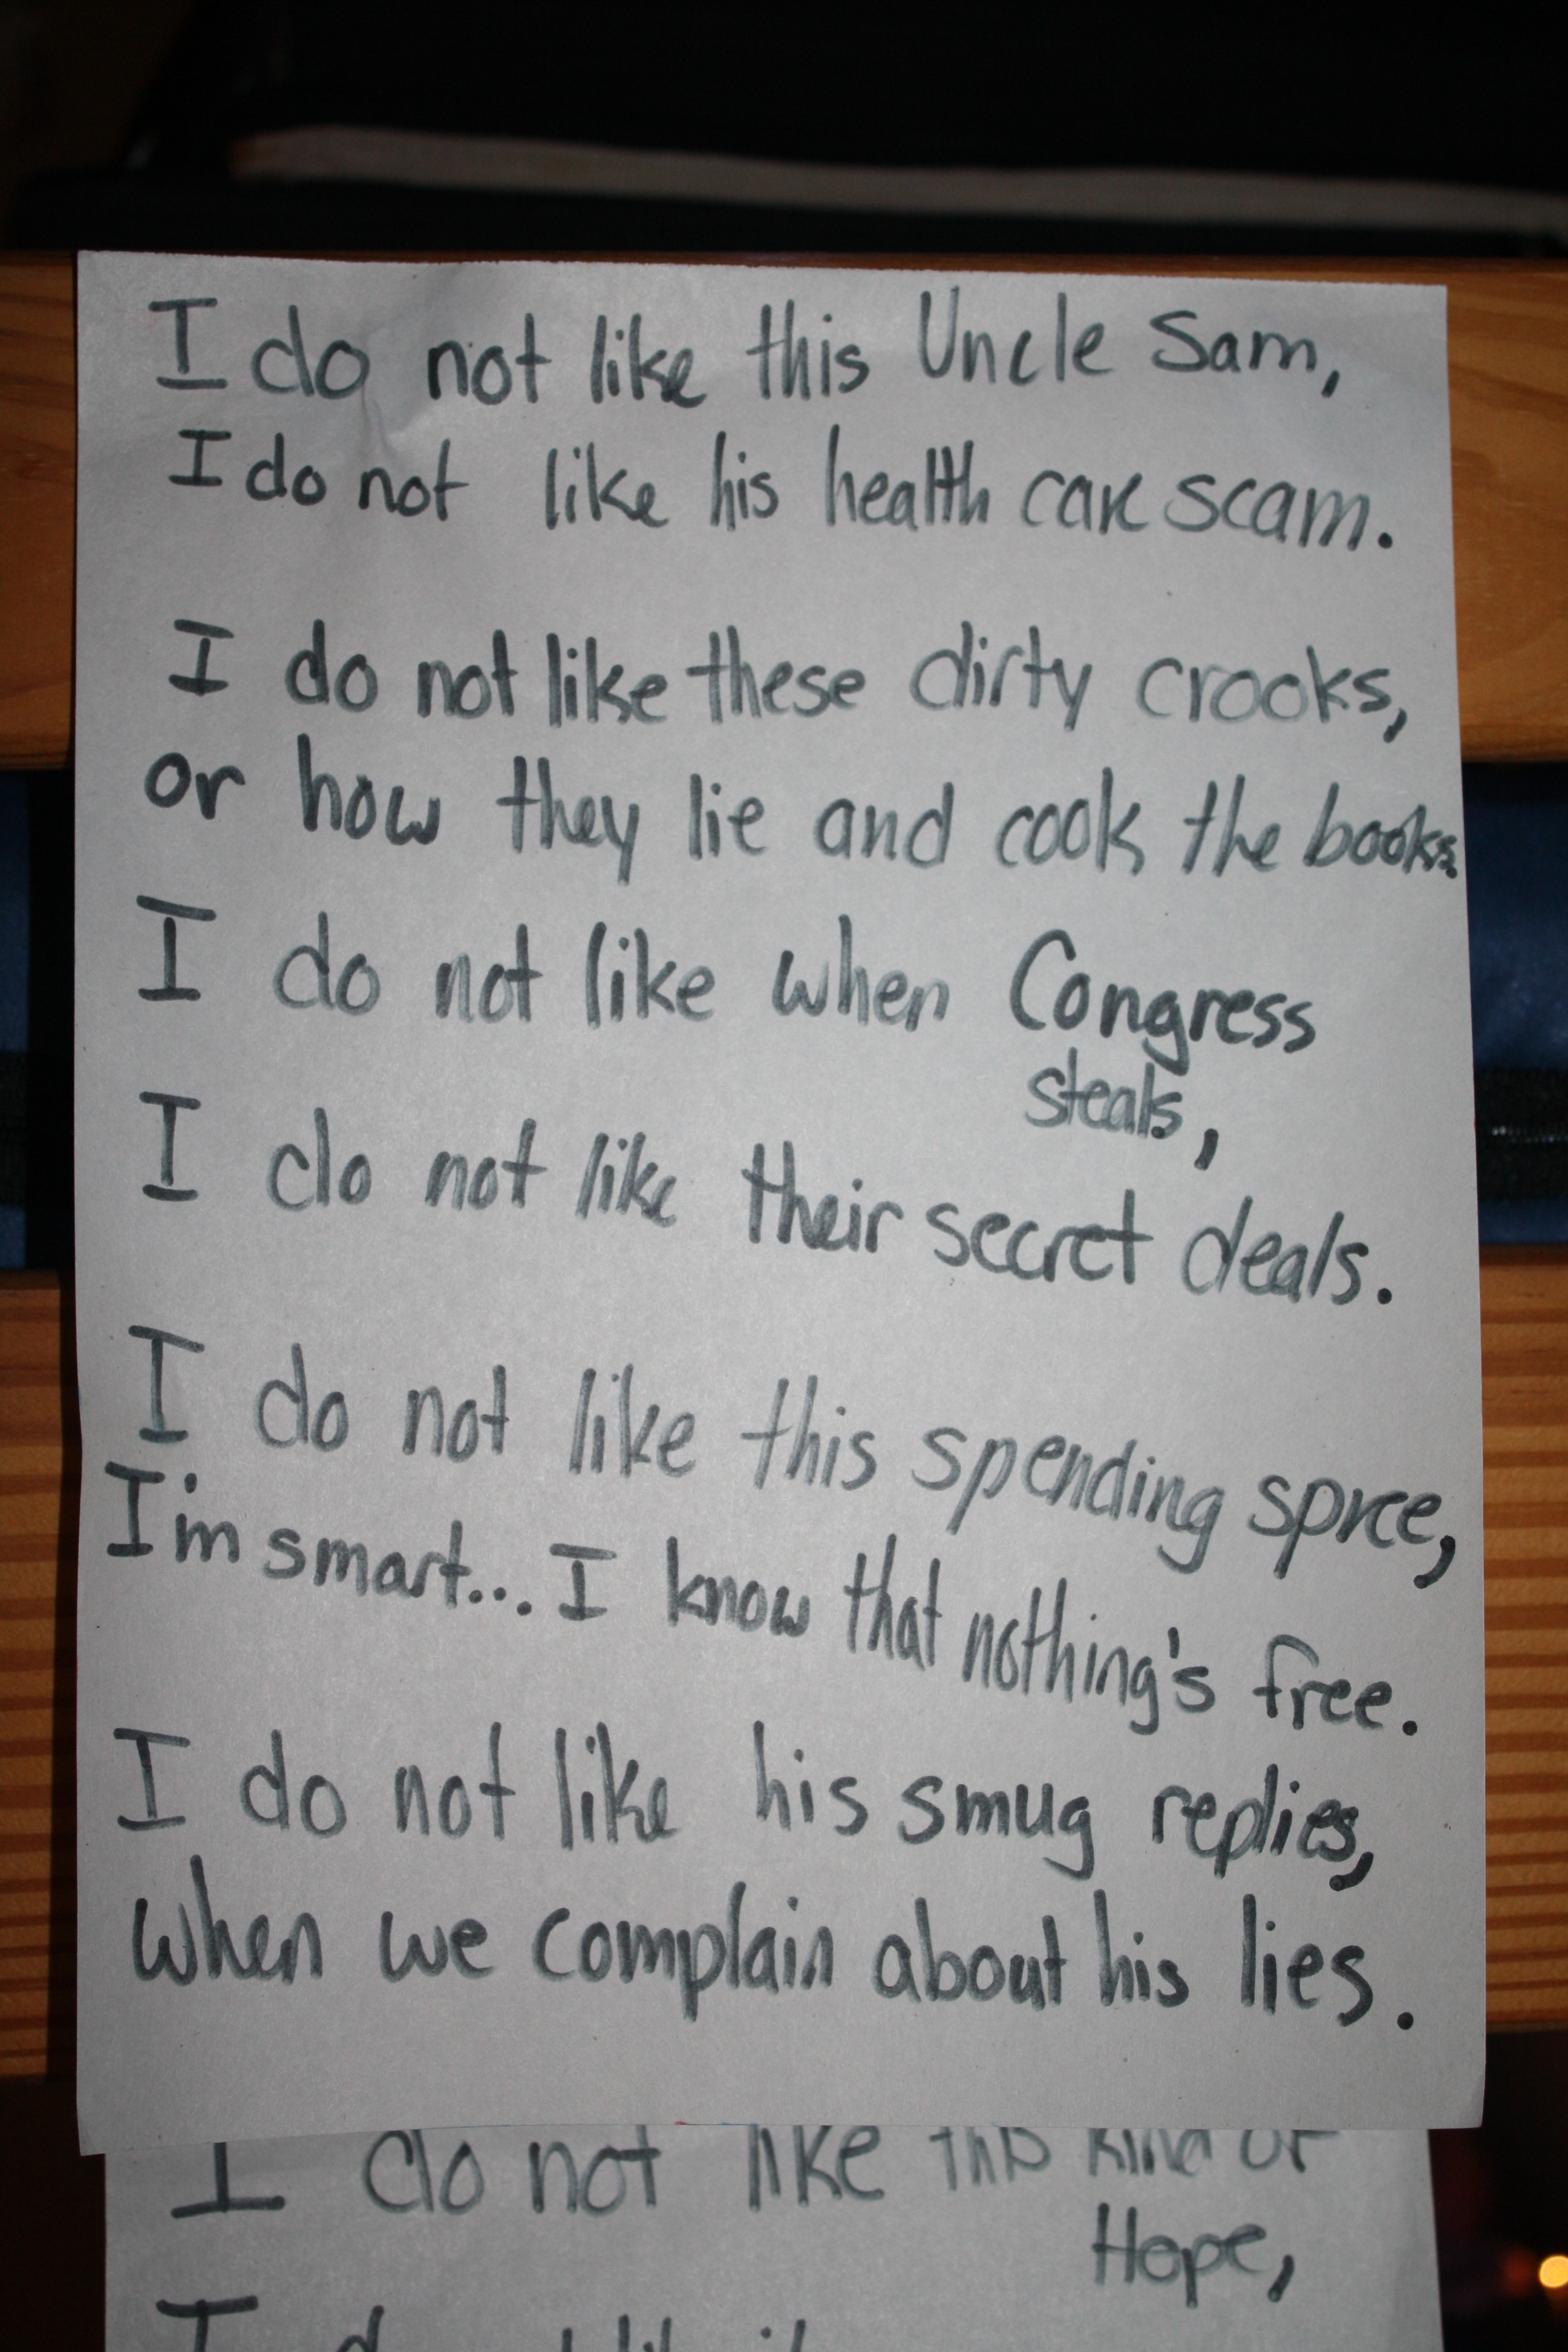 I do not like this Uncle Sam,
I do not like his health care scam.
I do not like these dirty crooks,
or how they lie and cook the books.
I do not like when Congress
steals,
I do not like their secret deals.
I do not like this spending spree,
I'm smart... I know that nothing's free.
I do not like his smug replies,
when we complain about his lies.
I do not like this kind of
Hope,
I do not like it